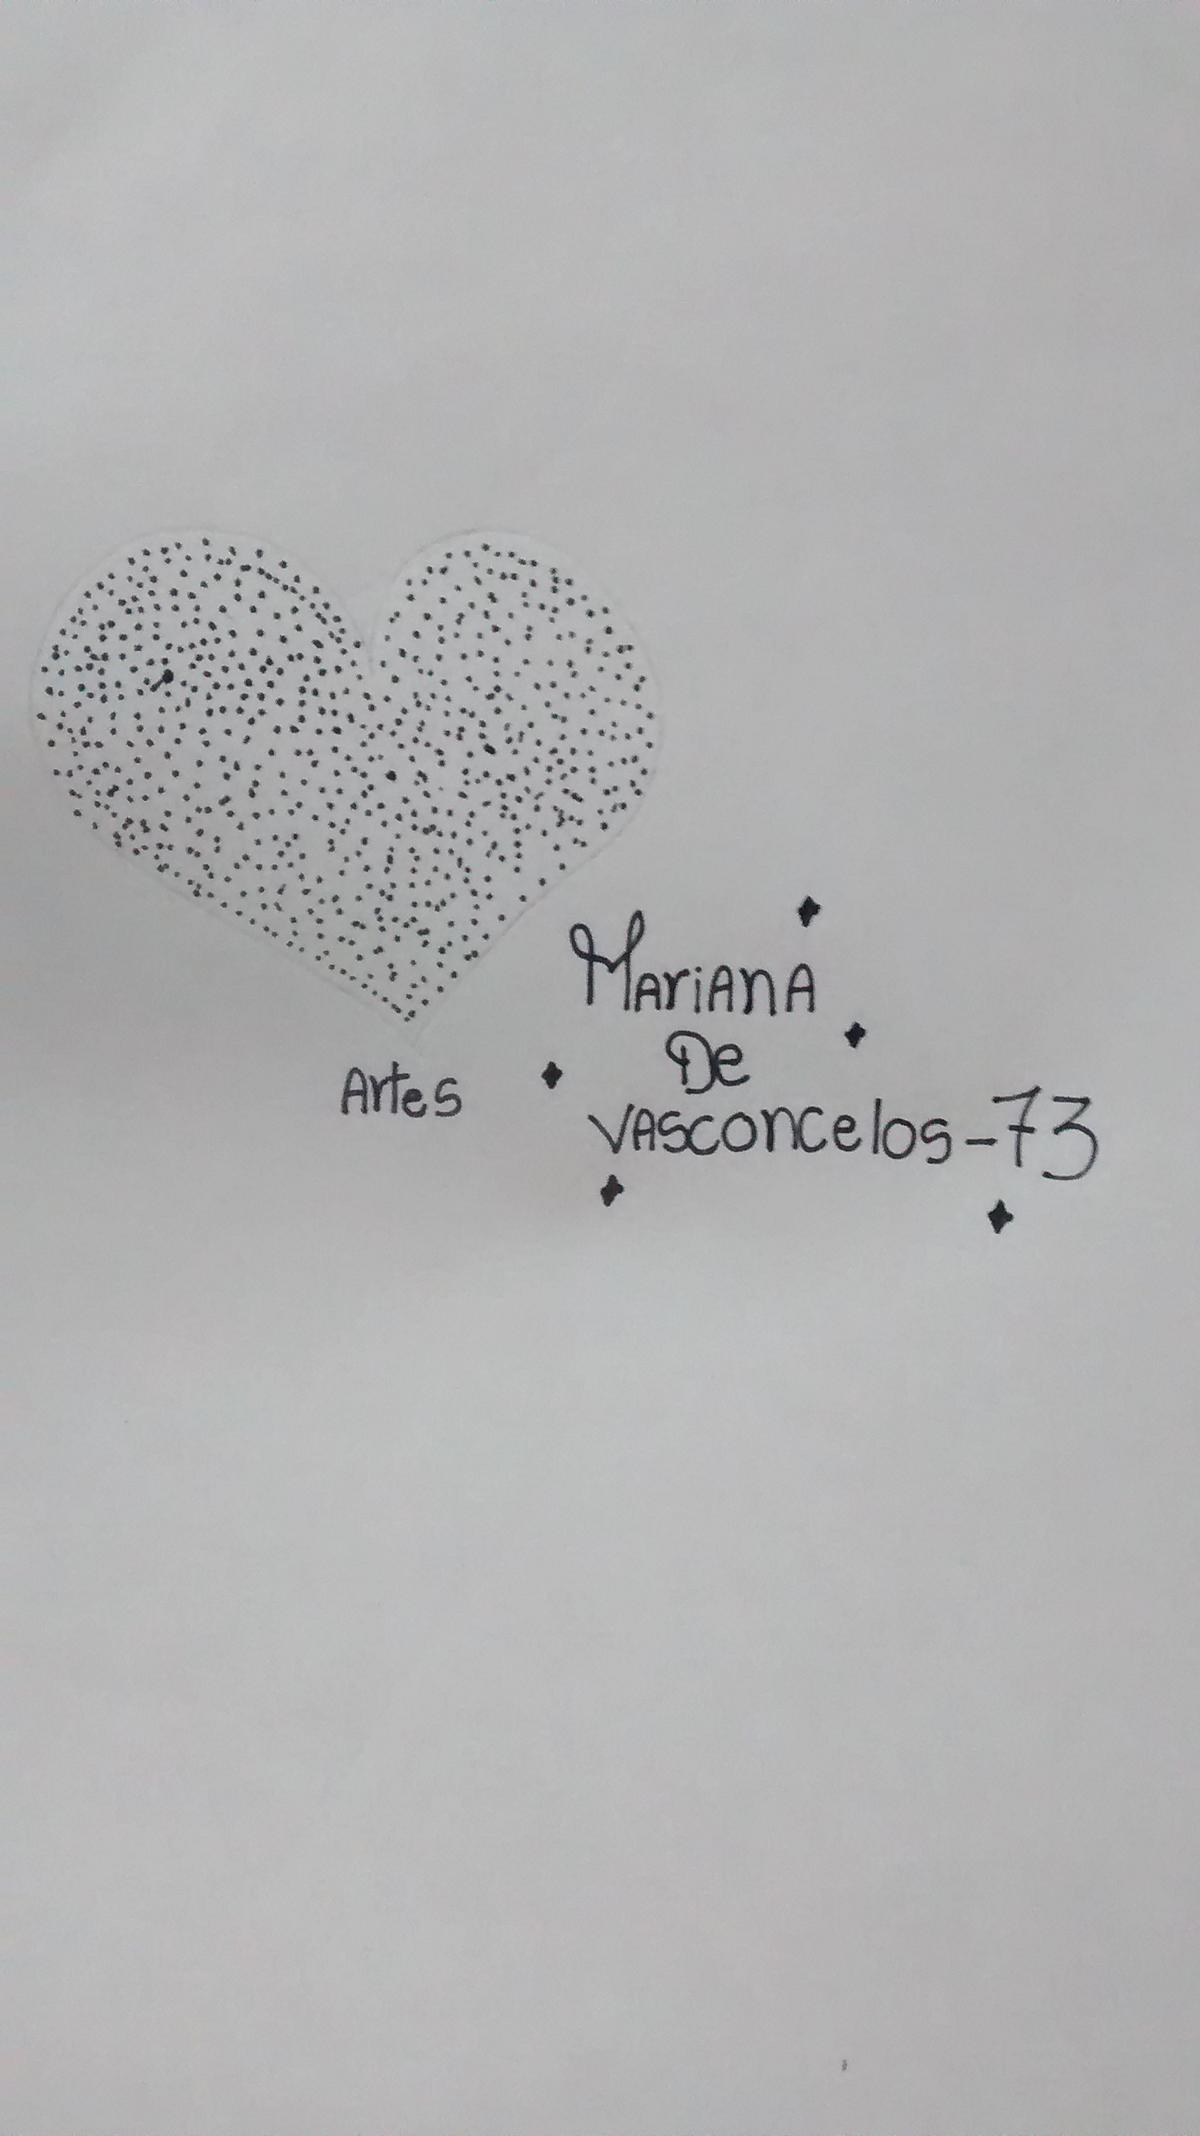 Mariana
De
Vasconcelos-73
Artes